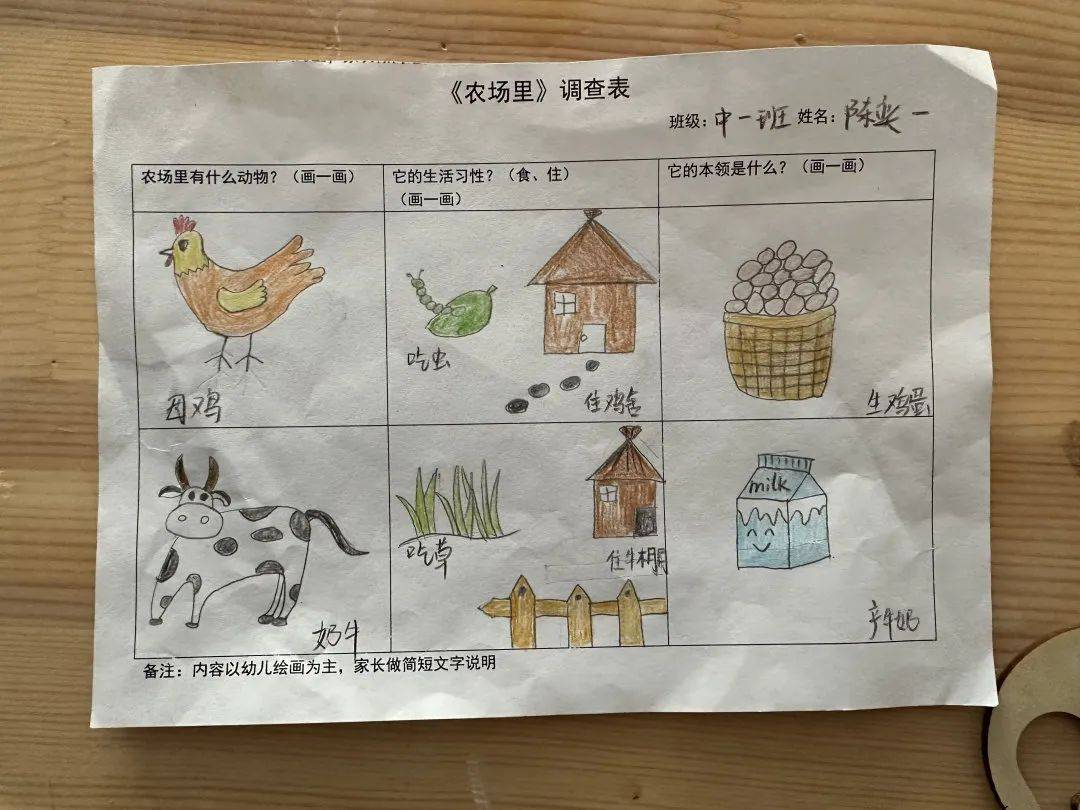 《农场里》调查表
班级：中一班 姓名：陈奕一
农场里有什么动物？（画一画）
它的生活习性？（食、住）
（画一画）
它的本领是什么？（画一画）
母鸡
吃虫
住鸡舍
生鸡蛋
奶牛
吃草
住牛棚
milk
产牛奶
备注：内容以幼儿绘画为主，家长做简短文字说明